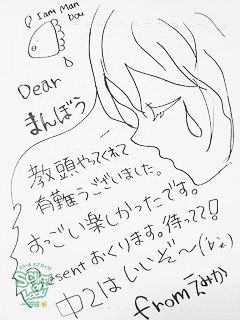 I am Man
bou
Dear
まんぼう
教頭やってくれて
有難うございました。
おっごい楽しかったです。
sent おくります。待ってて!
中2はいいぞ〜
from えみか